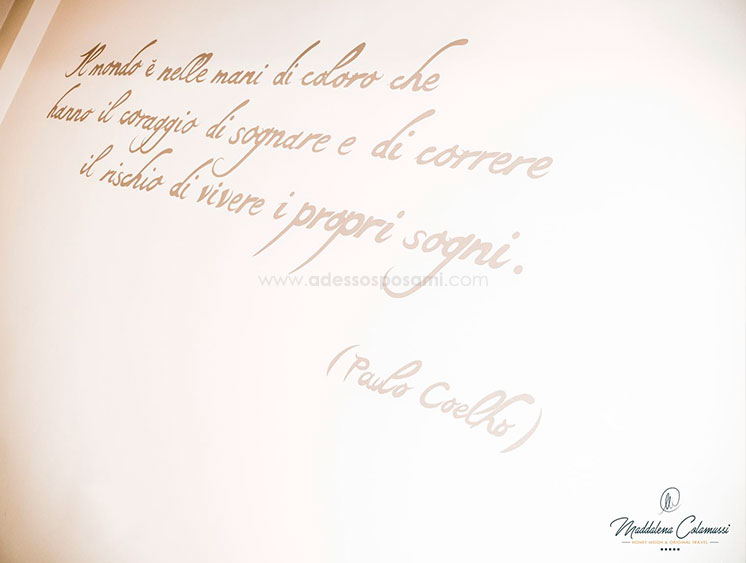 Il mondo è nelle mani di coloro che
hanno il coraggio di sognare e di correre
il rischio di vivere i propri sogni.
www.adessosposami.com
(Paulo Coelho)
Maddalena Colamussi
HONEY-MOON & ORIGINAL TRAVEL